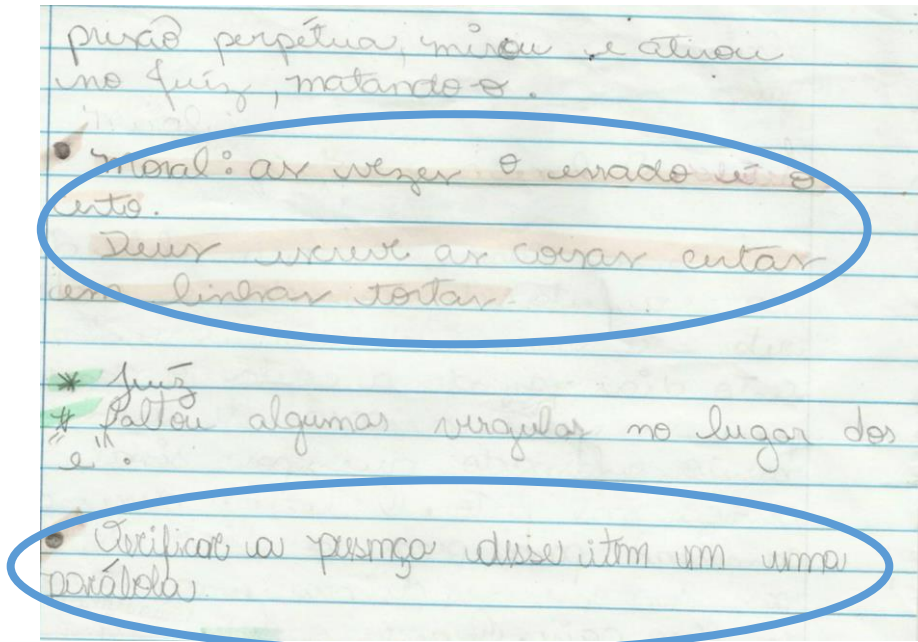 prisão perpétua, mirou e atirou
no juíz, matando o.
• Moral: as vezes o errado é o
certo.
Deus escreve as coisas certas
em linhas tortas.
* Juíz
* Faltou algumas virgulas no lugar dos
"e".
• Verificar a presença desse item em uma
parábola.